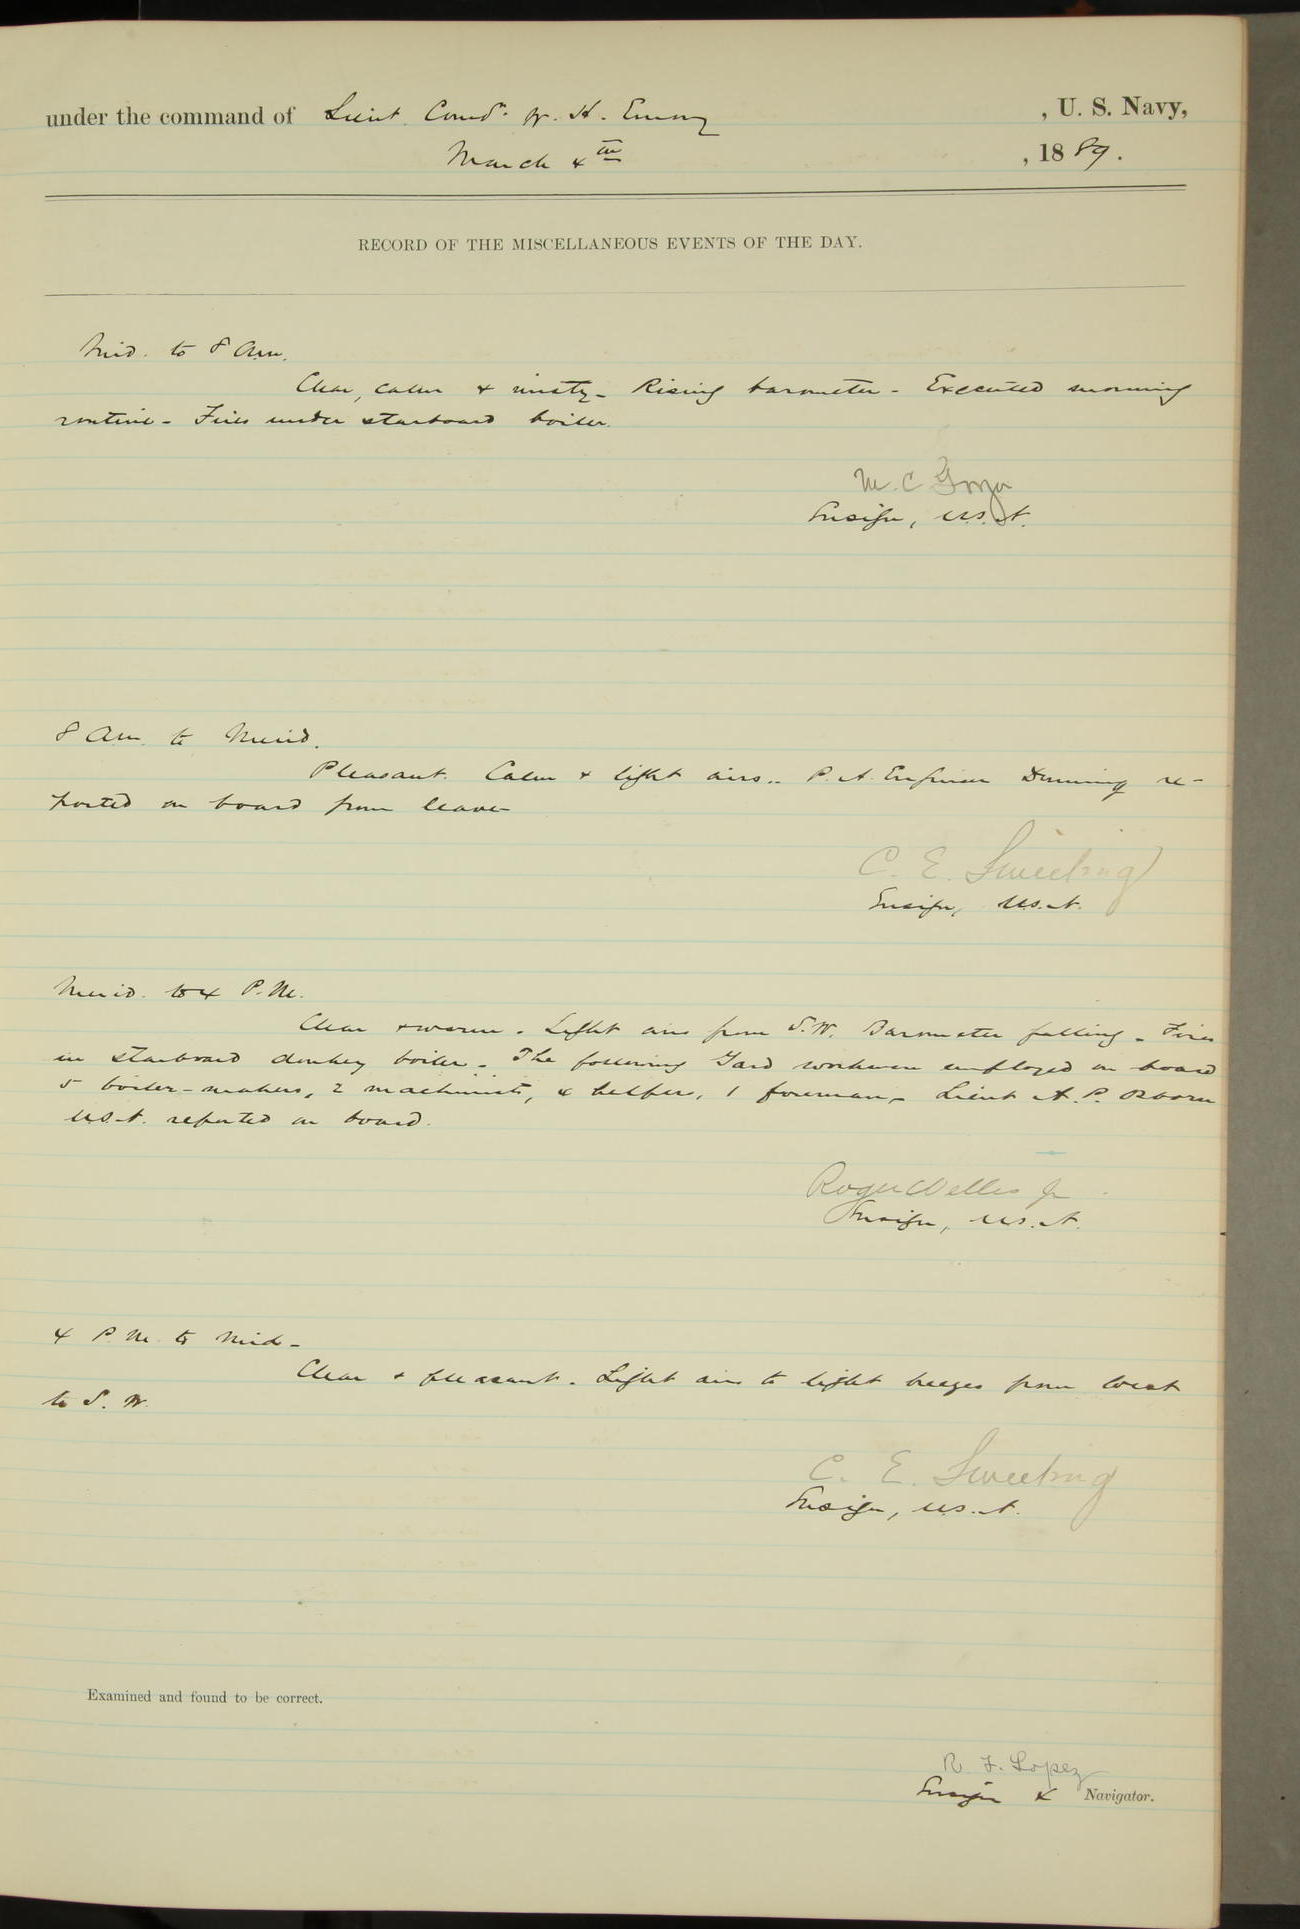 under the command of Lieut. Comdr. W. H. Emory, U. S. Navy,
March 4th, 1889.
RECORD OF THE MISCELLANEOUS EVENTS OF THE DAY.
Mid. to 8 A.m.
Clear, calm & misty - Rising barometer - Executed morning
routine - Fires under starboard boiler.
M. C.
Ensign, U.S.N.
8 A.m. to Merid.
Pleasant. Calm & light airs.. P. A. Engineer Dunning re-
ported on board from leave
C. E. Sweeting
Ensign, U.S.N.
Merid. to 4 P.M.
Clear & warm - Light airs from S.W. Barometer falling - Fires
in starboard donkey boiler - The following Yard workmen employed on board
5 boiler-makers, 2 machinists, 4 helpers, 1 foreman - Lieut A. P. Osborn
U.S.N. reported on board.
Roger Welles Jr
Ensign, U.S.N.
4 P.M. to Mid -
Clear & pleasant - Light airs to light breezes from West
to S. W.
C. E. Sweeting
Ensign, U.S.N.
Examined and found to be correct.
R. F. Lopez
Ensign & Navigator.